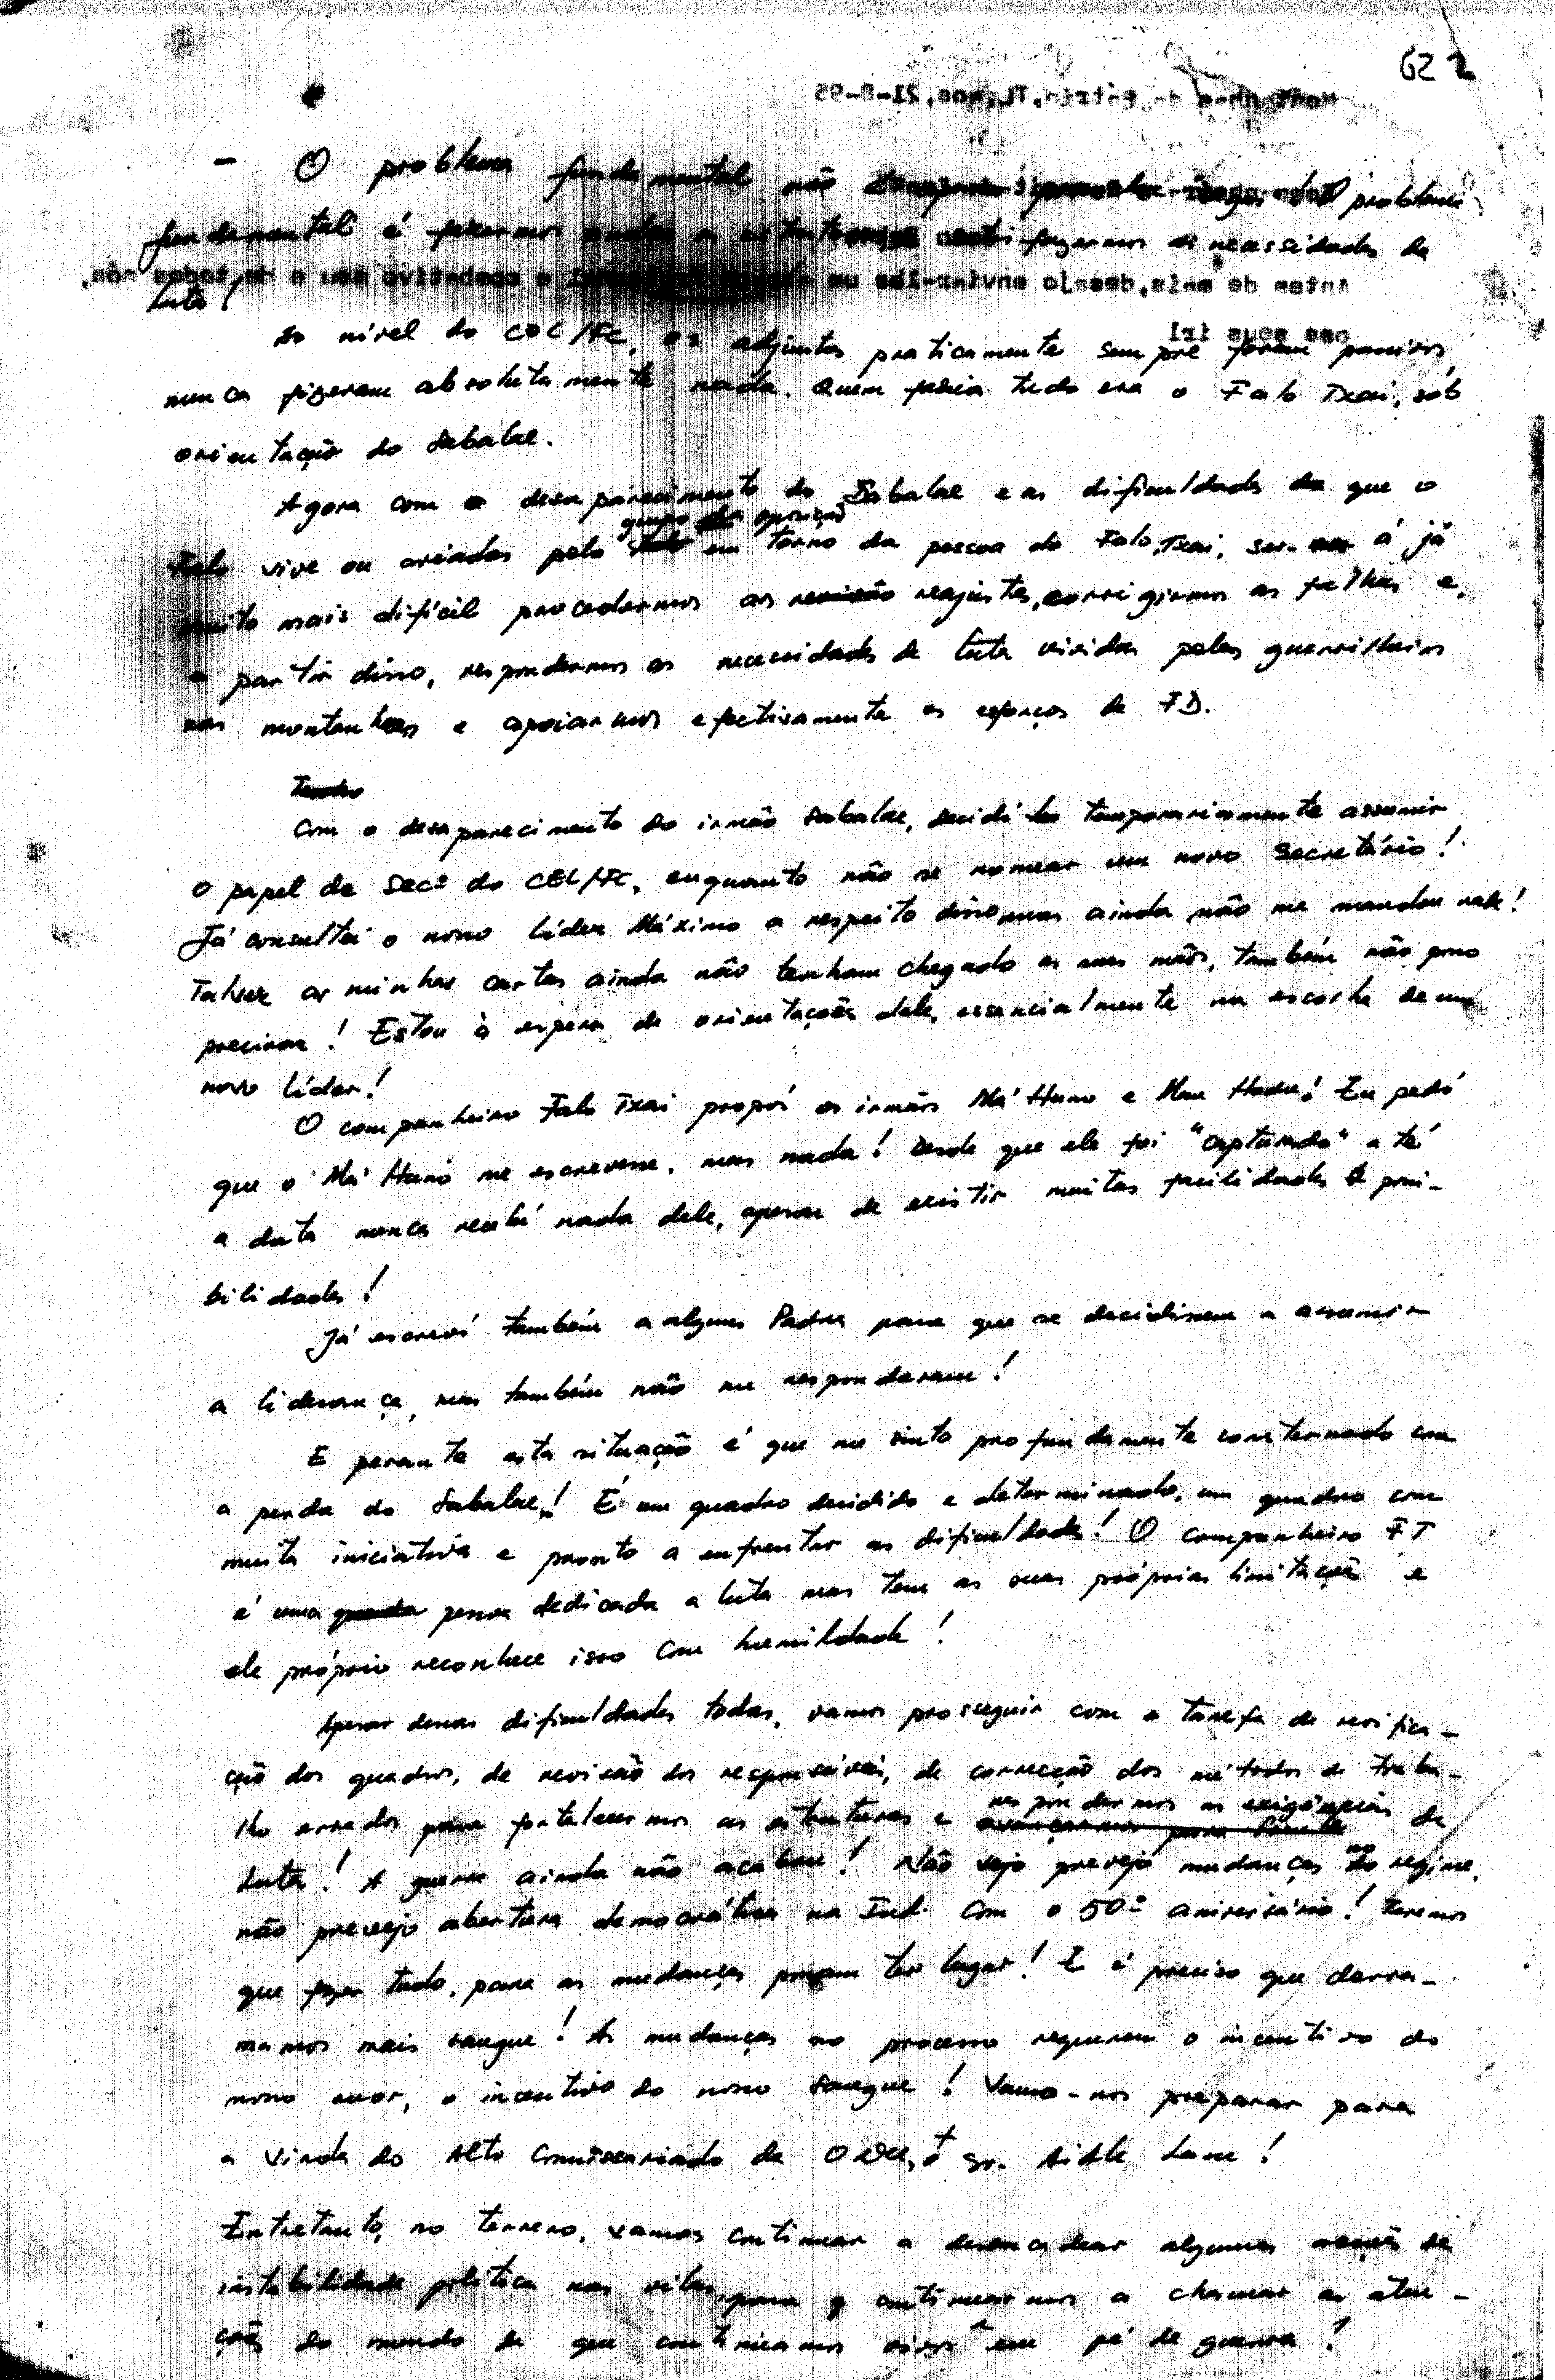 622
- O problema fundamental não O problema
fundamental é fazermos as satisfazermos as necessidades da
Luta!
Ao nível do CEL/FC, os adjuntos praticamente sempre foram passivos,
nunca fizeram absolutamente nada. Quem fazia tudo era o Falo Txai, sob
orientação do Sabalae.
Agora com o desaparecimento do Sabalae e as dificuldades de que o
grupo da oposição
Falo vive ou criadas pelo em torno da pessoa do Falo Txai, ser-á já
muito mais difícil procedermos aos reajustes, corrigirmos as falhas e,
a partir disso, respondermos as necessidades de luta vividas pelos guerrilheiros
nas montanhas e apoiarmos efectivamente os esforços da FD.
Com o desaparecimento do irmão Sabalae, decidi temporariamente assumir
o papel de Secº do CEL/FC, enquanto não se nomear um novo Secretário!
Já consultei o nosso Líder Máximo a respeito disso mas ainda não me mandou nada!
Talvez as minhas cartas ainda não tenham chegado as suas mãos, também não posso
precisar! Estou à espera de orientações dele, essencialmente na escolha de um
novo líder!
O companheiro Falo Txai propôs os irmãos Má Huno e Mau Hodu! Eu pedi
que o Má Huno me escrevesse, mas nada! Desde que ele foi "capturado" até
a data nunca recebi nada dele, apesar de existir muitas facilidades e possi-
bilidades!
Já escreví também a alguns Padres para que se decidissem a assumir
a liderança, mas também não me responderam!
E perante esta situação é que me sinto profundamente consternado com
a perda do Sabalae! É um quadro decidido e determinado, um quadro com
muita iniciativa e pronto a enfrentar as dificuldades! O companheiro FT
é uma pessoa dedicada a luta mas tem as suas próprias limitações e
ele próprio reconhece isso com humildade!
Apesar dessas dificuldades todas, vamos prosseguir com a tarefa de verifica-
ção dos quadros, de revisão dos responsáveis, de correcção dos métodos de traba-
respondermos as exigências
lho errados para fortalecermos as estruturas e avançarmos para frente da
Luta! A guerra ainda não acabou! Não vejo prevejo mudanças no regime,
não prevejo abertura democrática na Ind. com o 50º aniversário! Teremos
que fazer tudo, para as mudanças possam ter lugar! E é preciso que derra-
mamos mais sangue! As mudanças no processo requerem o incentivo do
nosso suor, o incentivo do nosso sangue! Vamo-nos preparar para
a vinda do Alto Comissariado da ONU, o Sr. Aialla Lasso!
Entretanto, no terreno, vamos continuar a desencadear algumas acções de
instabilidade política nas vilas, para q continuarmos a chamar as aten-
ções do mundo de que continuamos vivos e em pé de guerra!